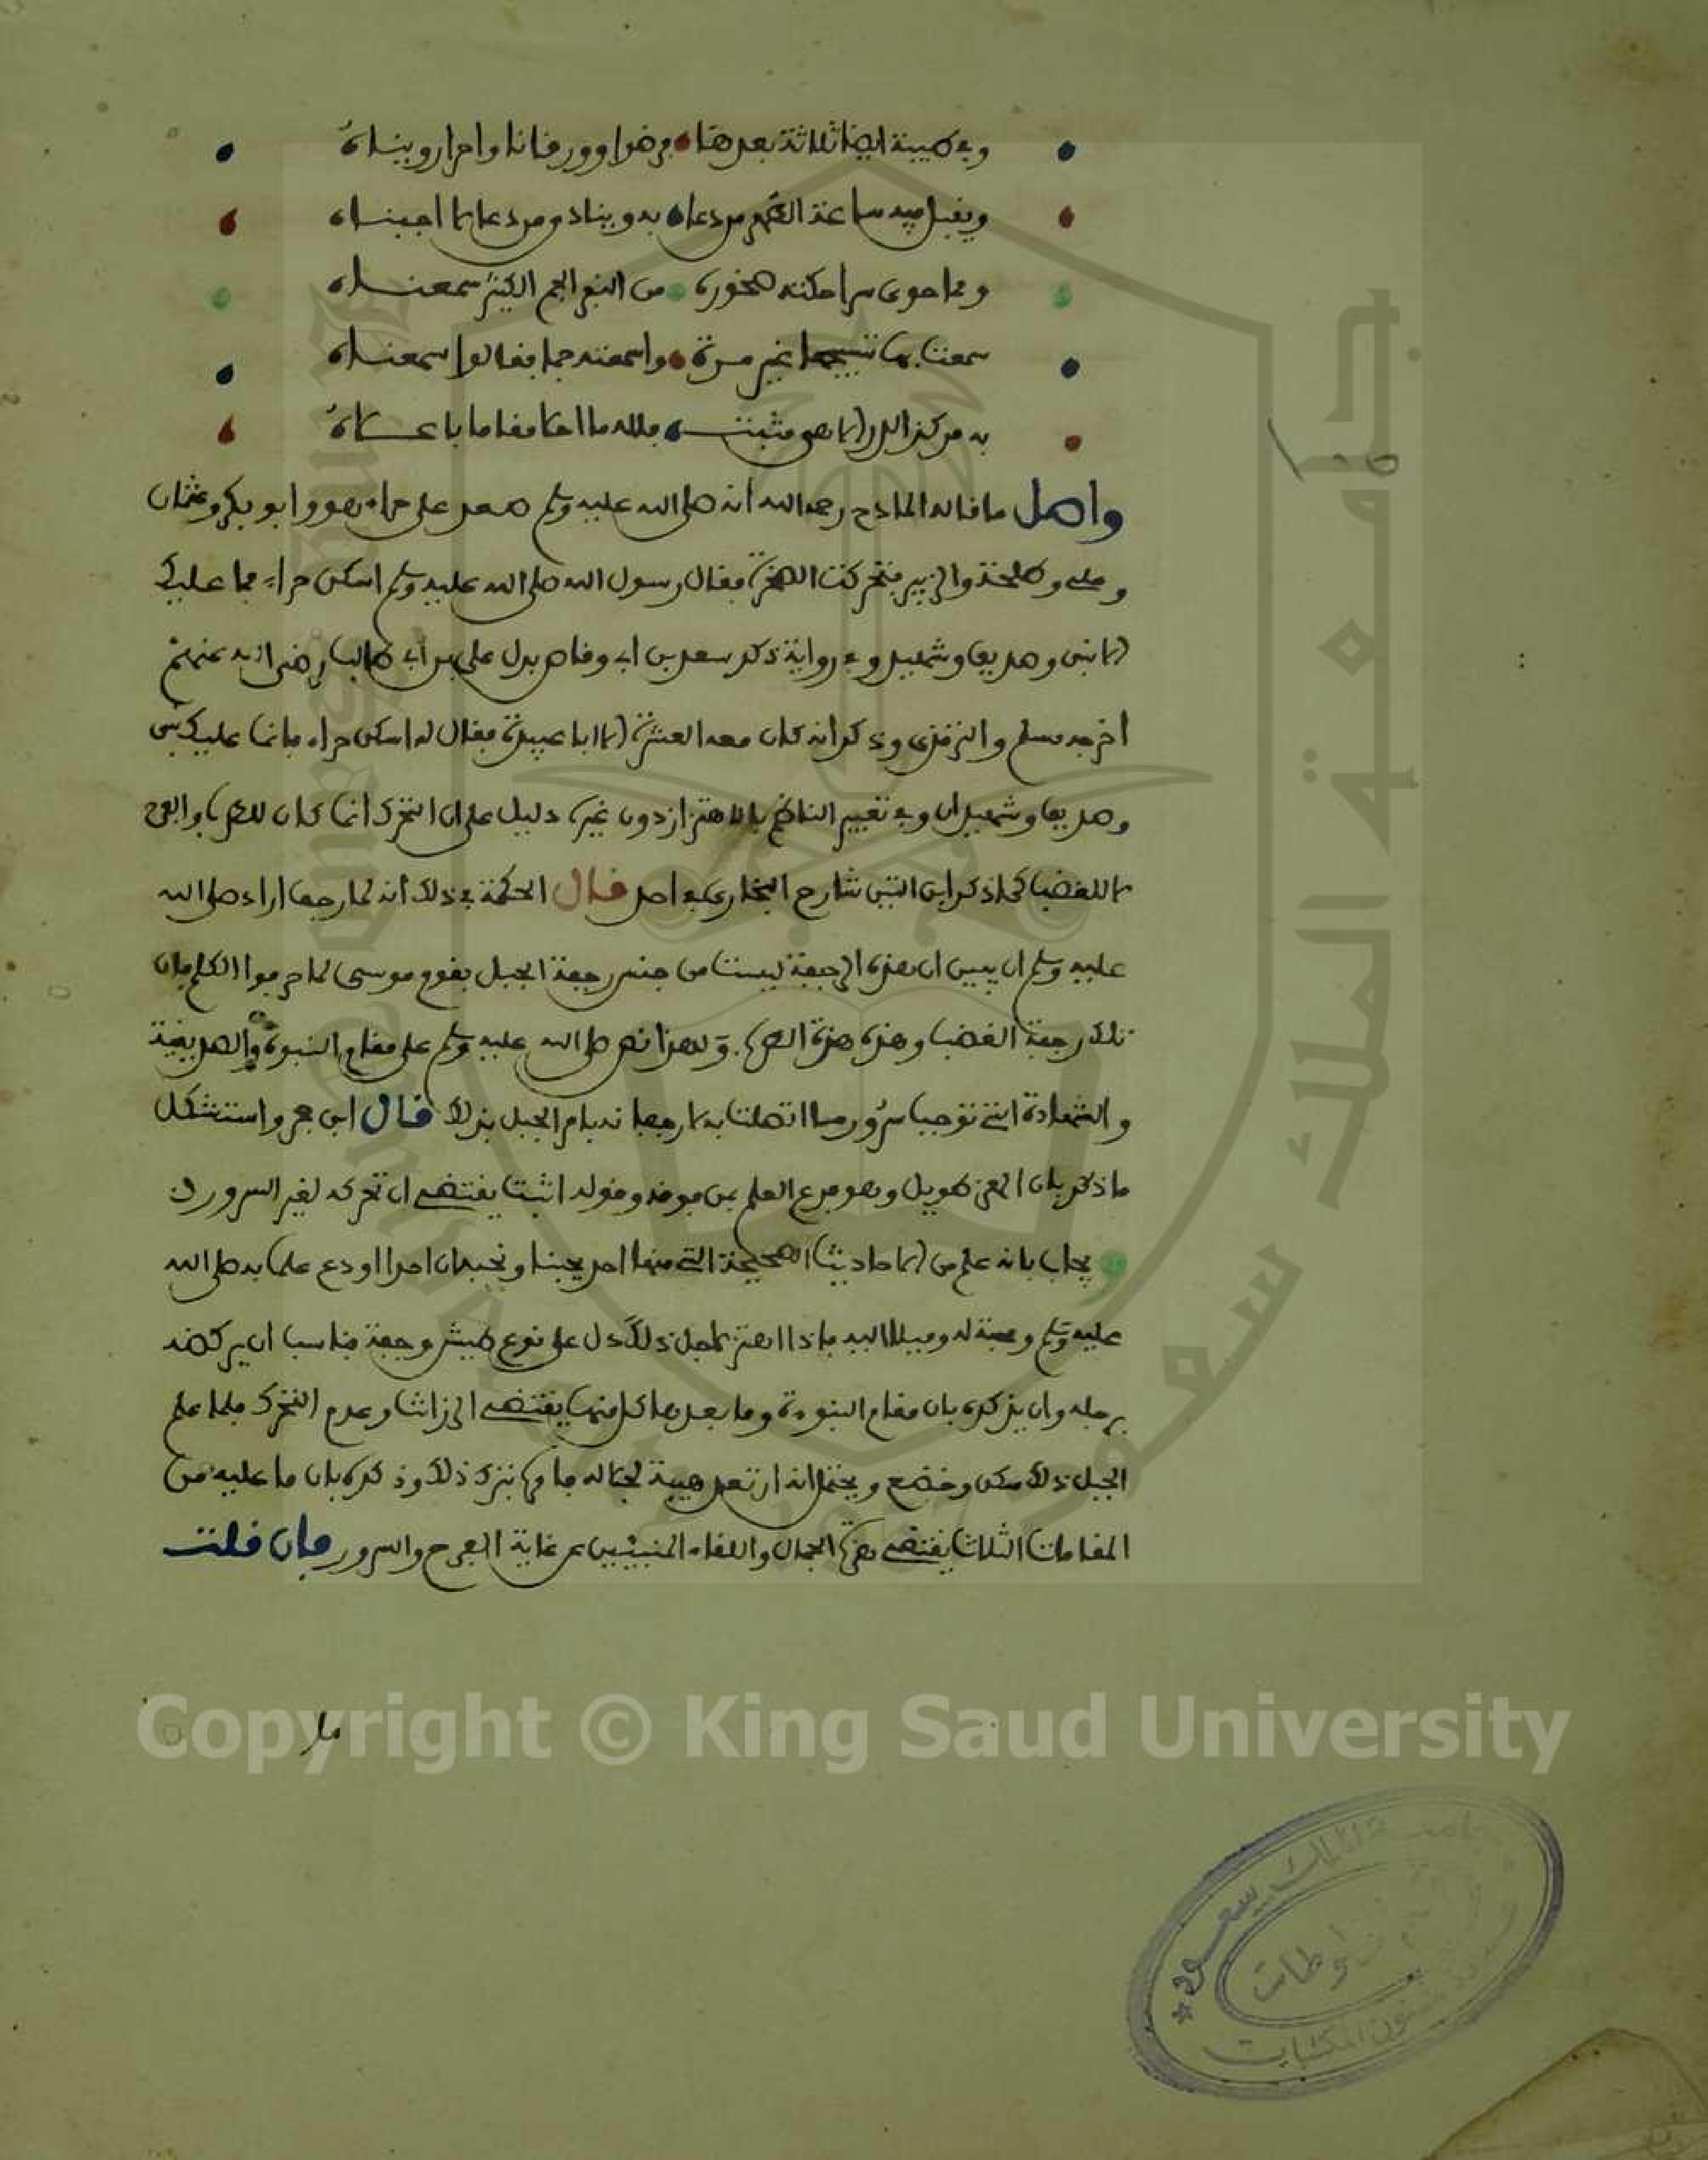 وفي طيبة ايضا ثلاثة بعدها فرضوا وورقانا واحدا رويناه
ويقبل فيه ساعة الظهر من دعاه به وينادي من دعانا اجبناه
ومما حوى سرا حكته صخوره من التبر الجم الكثير سمعناه
سمعت بها تسبيحها غير مرة واسمعته جمعا فقالوا سمعناه
به مركز النور الالاهي مثبت فلله ما احلا مقاما باعلاه
واصل ما قاله المادح رحمه الله انه صلى الله عليه وسلم صعد على حراء هو وابو بكر وعثمان
وعلي وطلحة والزبير فتحركت الصخرة فقال رسول الله صلى الله عليه وسلم اسكن حراء فما عليك
الا نبي وصديق وشهيد وفي رواية ذكر سعد بن ابي وقاص بدل علي بن ابي طالب رضي الله عنهم
اخرجه مسلم والترمذي وذكر انه كان معه العشرة الا ابا عبيدة فقال له اسكن حراء فانما عليك نبي
وصديق وشهيدان وفي تعبير الناظم بالاهتزاز دون غيره دليل على ان التحرك انما كان للطرب والفرح
لا للغضب كما ذكر ابن التين شارح البخاري في احد قال الحكمة في ذلك انه لما رجف اراد صلى الله
عليه وسلم ان يبين ان هذه الرجفة ليست من جنس رجفة الجبل بقوم موسى لما حرفوا الكلم فان
تلك رجفة الغضب وهذه هزة الطرب ولهذا نص صلى الله عليه وسلم على مقام النبوة والصديقية
والشهادة التي توجب سرور ما اتصلت به لا رجفانه فاقر الجبل بذلك قال ابن حجر واستشكل
ما ذكر بان الهز طويل وهو فرع العلم بمن فوقه وقوله اثبت يقتضي ان تحركه لغير السرور
ويجاب بانه علم من الاحاديث الصحيحة التي منها احد يحبنا ونحبه ان احدا اودع علما به صلى الله
عليه وسلم ومحبة له وميلا اليه فاذا اهتز لاجل ذلك دل على نوع طيش وخفة فناسب ان يركضه
برجله وان يذكره بان مقام النبوءة وما بعدها كل منها يقتضي الرزانة وعدم التحرك فلما علم
الجبل ذلك سكن وخضع ويحتمل انه ارتعد هيبة لجلاله فامره بترك ذلك وذكره بان ما عليه من
المقامات الثلاث يقتضي صرف الجلال واللقاء المنبئين عن غاية الفرح والسرور فان قلت
ما
Copyright © King Saud University
جامعة الملك سعود
1957